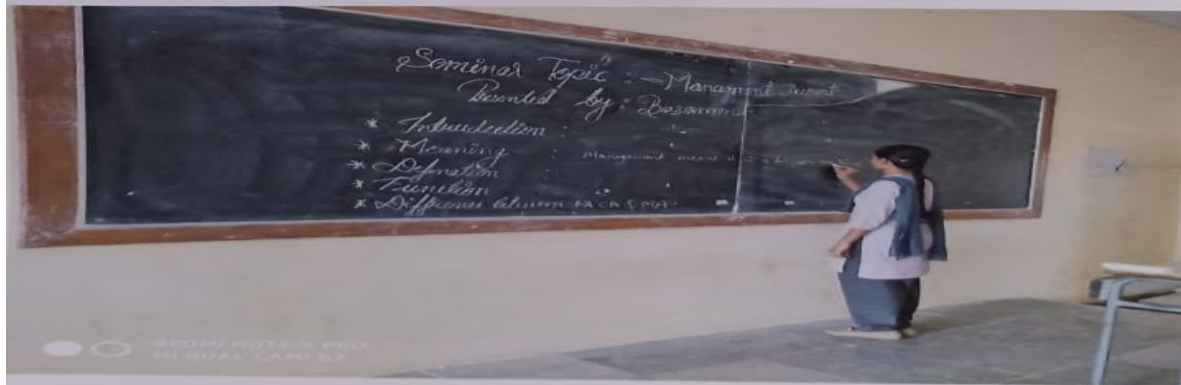 Seminar Topic : - Manament
Presented by : Basamma
* Introduction :
* Meaning : Management means
* Defination :
* Function
* Difference between FA CA & MA
REDMI NOTE 5 PRO
MI DUAL CAMERA